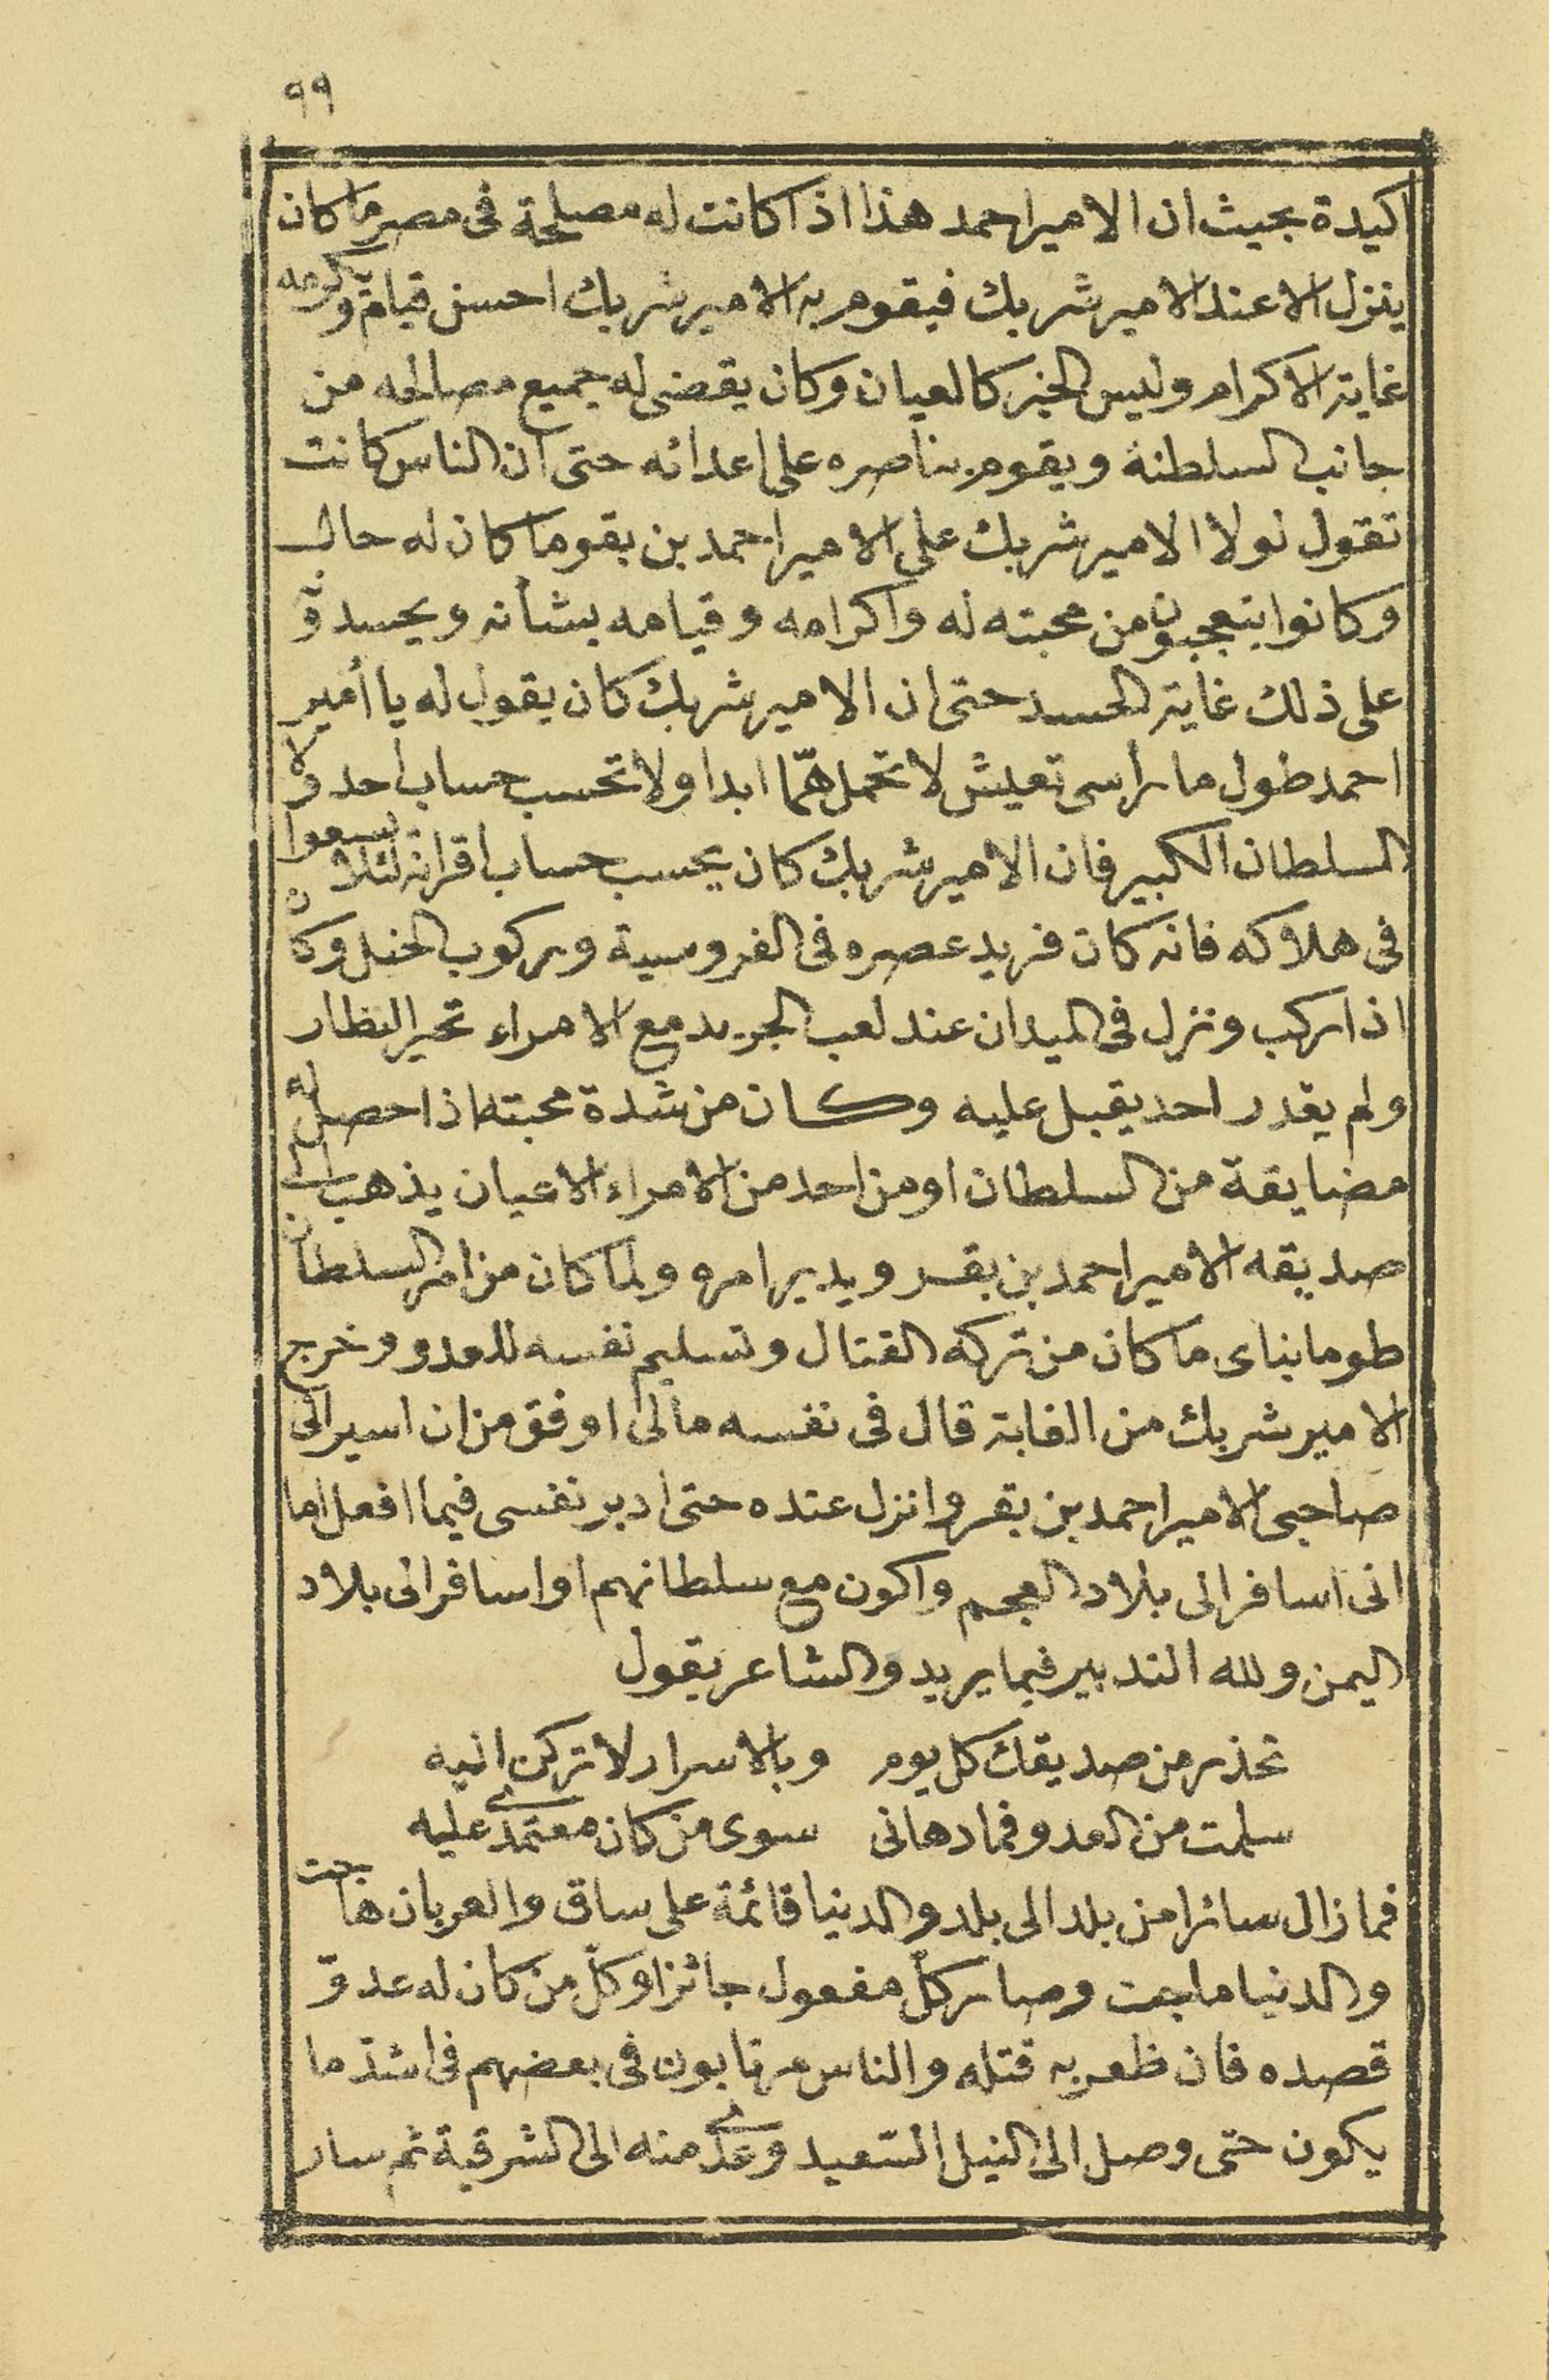 ٩٩
اكيدة بحيث ان الامير احمد هذا اذا كانت له مصلحة فى مصر ما كان
ينزل الا عند الامير شربك فيقوم به الامير شربك احسن قيام ويكرمه
غاية الاكرام وليس الخبر كالعيان وكان يقضى له جميع مصالحه من
جانب السلطنة ويقوم بناصره على اعدائه حتى ان الناس كانت
تقول لولا الامير شربك على الامير احمد بن بقر ما كان له حال
وكانوا يتعجبون من محبته له واكرامه وقيامه بشأنه ويحسدونه
على ذلك غاية الحسد حتى ان الامير شربك كان يقول له يا أمير
احمد طول ما راسى تعيش لا تحمل همّا ابدا ولا تحسب حساب احد ولا
السلطان الكبير فان الامير شربك كان يحسب حساب اقرانه لئلا يسعوا
فى هلاكه فانه كان فريد عصره فى الفروسية وركوب الخيل وكان
اذا ركب ونزل فى الميدان عند لعب الجريد مع الامراء تحير النظار
ولم يقدر احد يقبل عليه وكان من شدة محبته اذا حصل له
مضايقة من السلطان او من احد من الامراء الاعيان يذهب الى
صديقه الامير احمد بن بقر ويدير امره ولما كان من امر السلطان
طومانباى ما كان من تركه القتال وتسليم نفسه للعدو وخرج
الامير شربك من الغابة قال فى نفسه مالى اوفق من ان اسير الى
صاحبى الامير احمد بن بقر وانزل عنده حتى ادبر نفسى فيما افعل اما
انى اسافر الى بلاد العجم واكون مع سلطانهم او اسافر الى بلاد
اليمن ولله التدبير فيما يريد والشاعر يقول
تحذر من صديقك كل يوم وبالاسرار لا تركن اليه
سلمت من العدو فما دهانى سوى من كان معتمدى عليه
فما زال سائرا من بلد الى بلد والدنيا قائمة على ساق والعربان هاجت
والدنيا ماجت وصار كلّ مفعول جائزا وكلّ من كان له عدوّ
قصده فان ظفر به قتله والناس مرتابون فى بعضهم فى اشدّ ما
يكون حتى وصل الى النيل السّعيد وعدّى منه الى الشرقية ثم سار